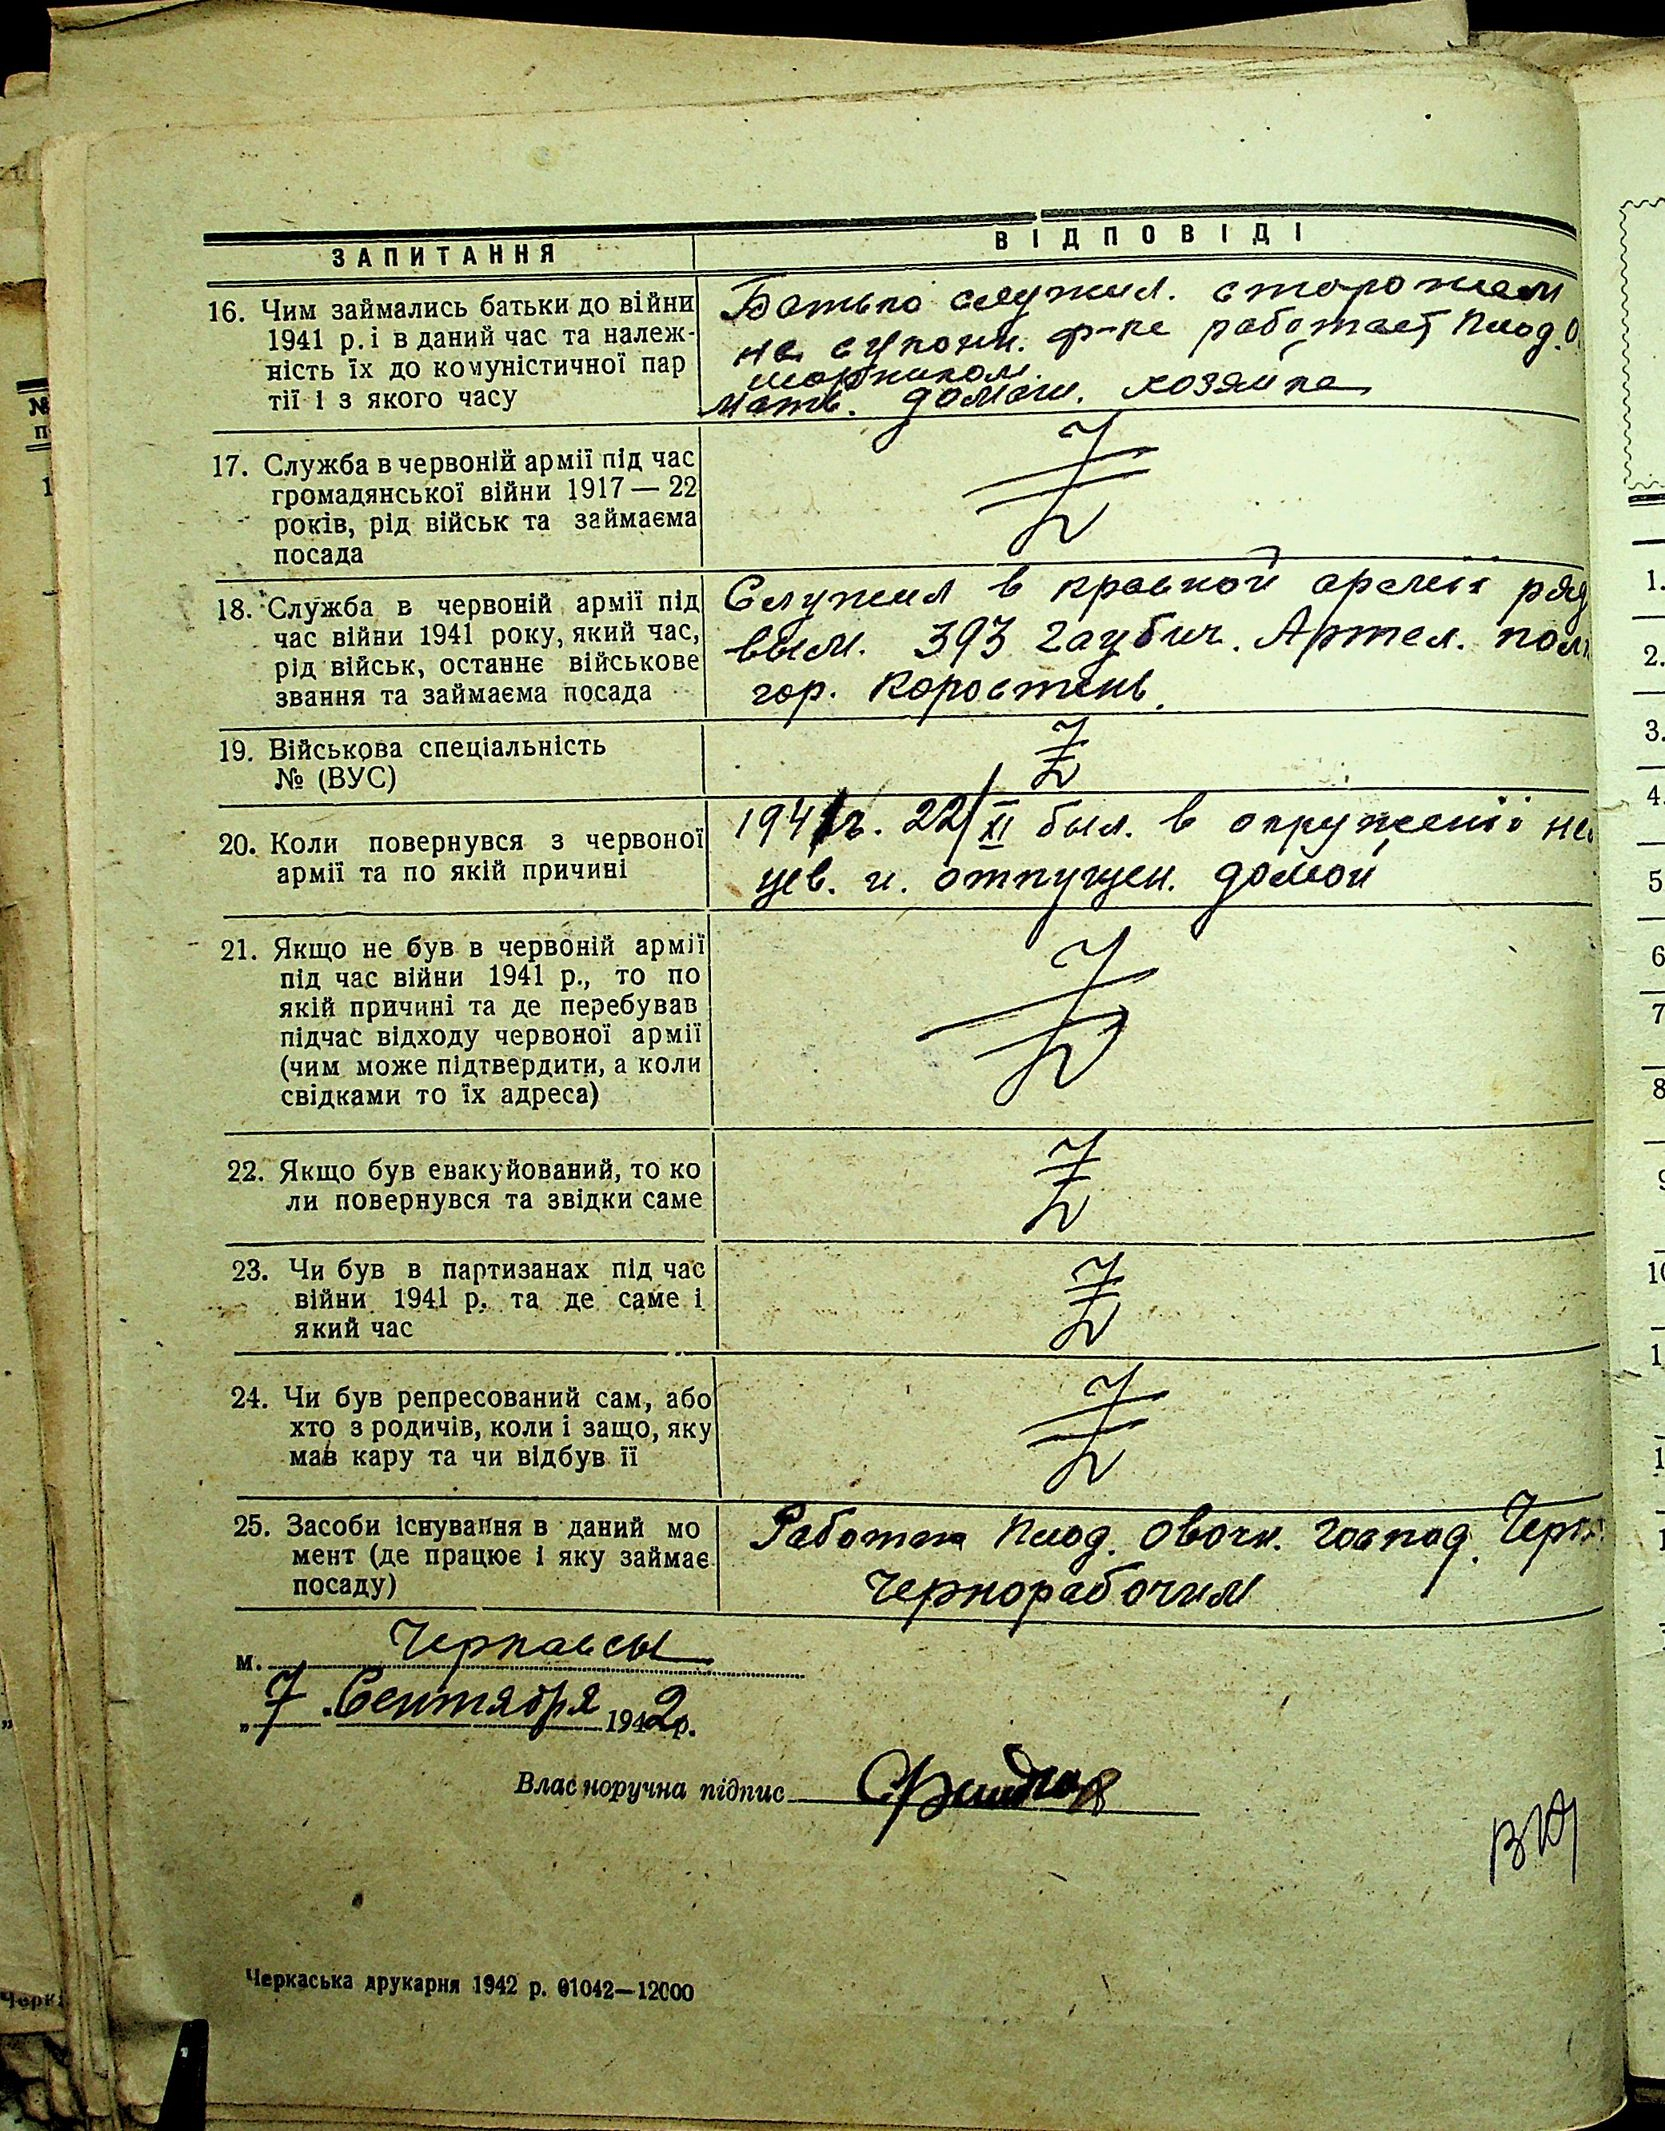 ЗАПИТАННЯ
ВІДПОВІДІ
16. Чим займались батьки до війни
1941 р. і в даний час та належ-
ність їх до комуністичної пар
тії і з якого часу
Батько служил. сторожем
на сукон. ф-ке работает Плод. О
Мать. домаш. хозяйка
17. Служба в червоній армії під час
громадянської війни 1917 — 22
років, рід військ та займаєма
посада
18. Служба в червоній армії під
час війни 1941 року, який час,
рід військ, останнє військове
звання та займаєма посада
Служил в красной армии ряд
вым. 393 гаубич. Артел. полк
гор. Коростень.
19. Військова спеціальність
№ (ВУС)
20. Коли повернувся з червоної
армії та по якій причині
1941г. 22/XI был. в окружении не
цев. и. отпущен. домой
21. Якщо не був в червоній армії
під час війни 1941 р., то по
якій причині та де перебував
підчас відходу червоної армії
(чим може підтвердити, а коли
свідками то їх адреса)
22. Якщо був евакуйований, то ко
ли повернувся та звідки саме
23. Чи був в партизанах під час
війни 1941 р. та де саме і
який час
24. Чи був репресований сам, або
хто з родичів, коли і защо, яку
мав кару та чи відбув її
25. Засоби існування в даний мо
мент (де працює і яку займає
посаду)
Работаю Плод. Овочн. господ. Черк
чернорабочим
м. Черкассы
„7 Сентября 1942р.
Власноручна підпис
Черкаська друкарня 1942 р. 01042—12000
1.
2.
3.
4.
5
6
7
8